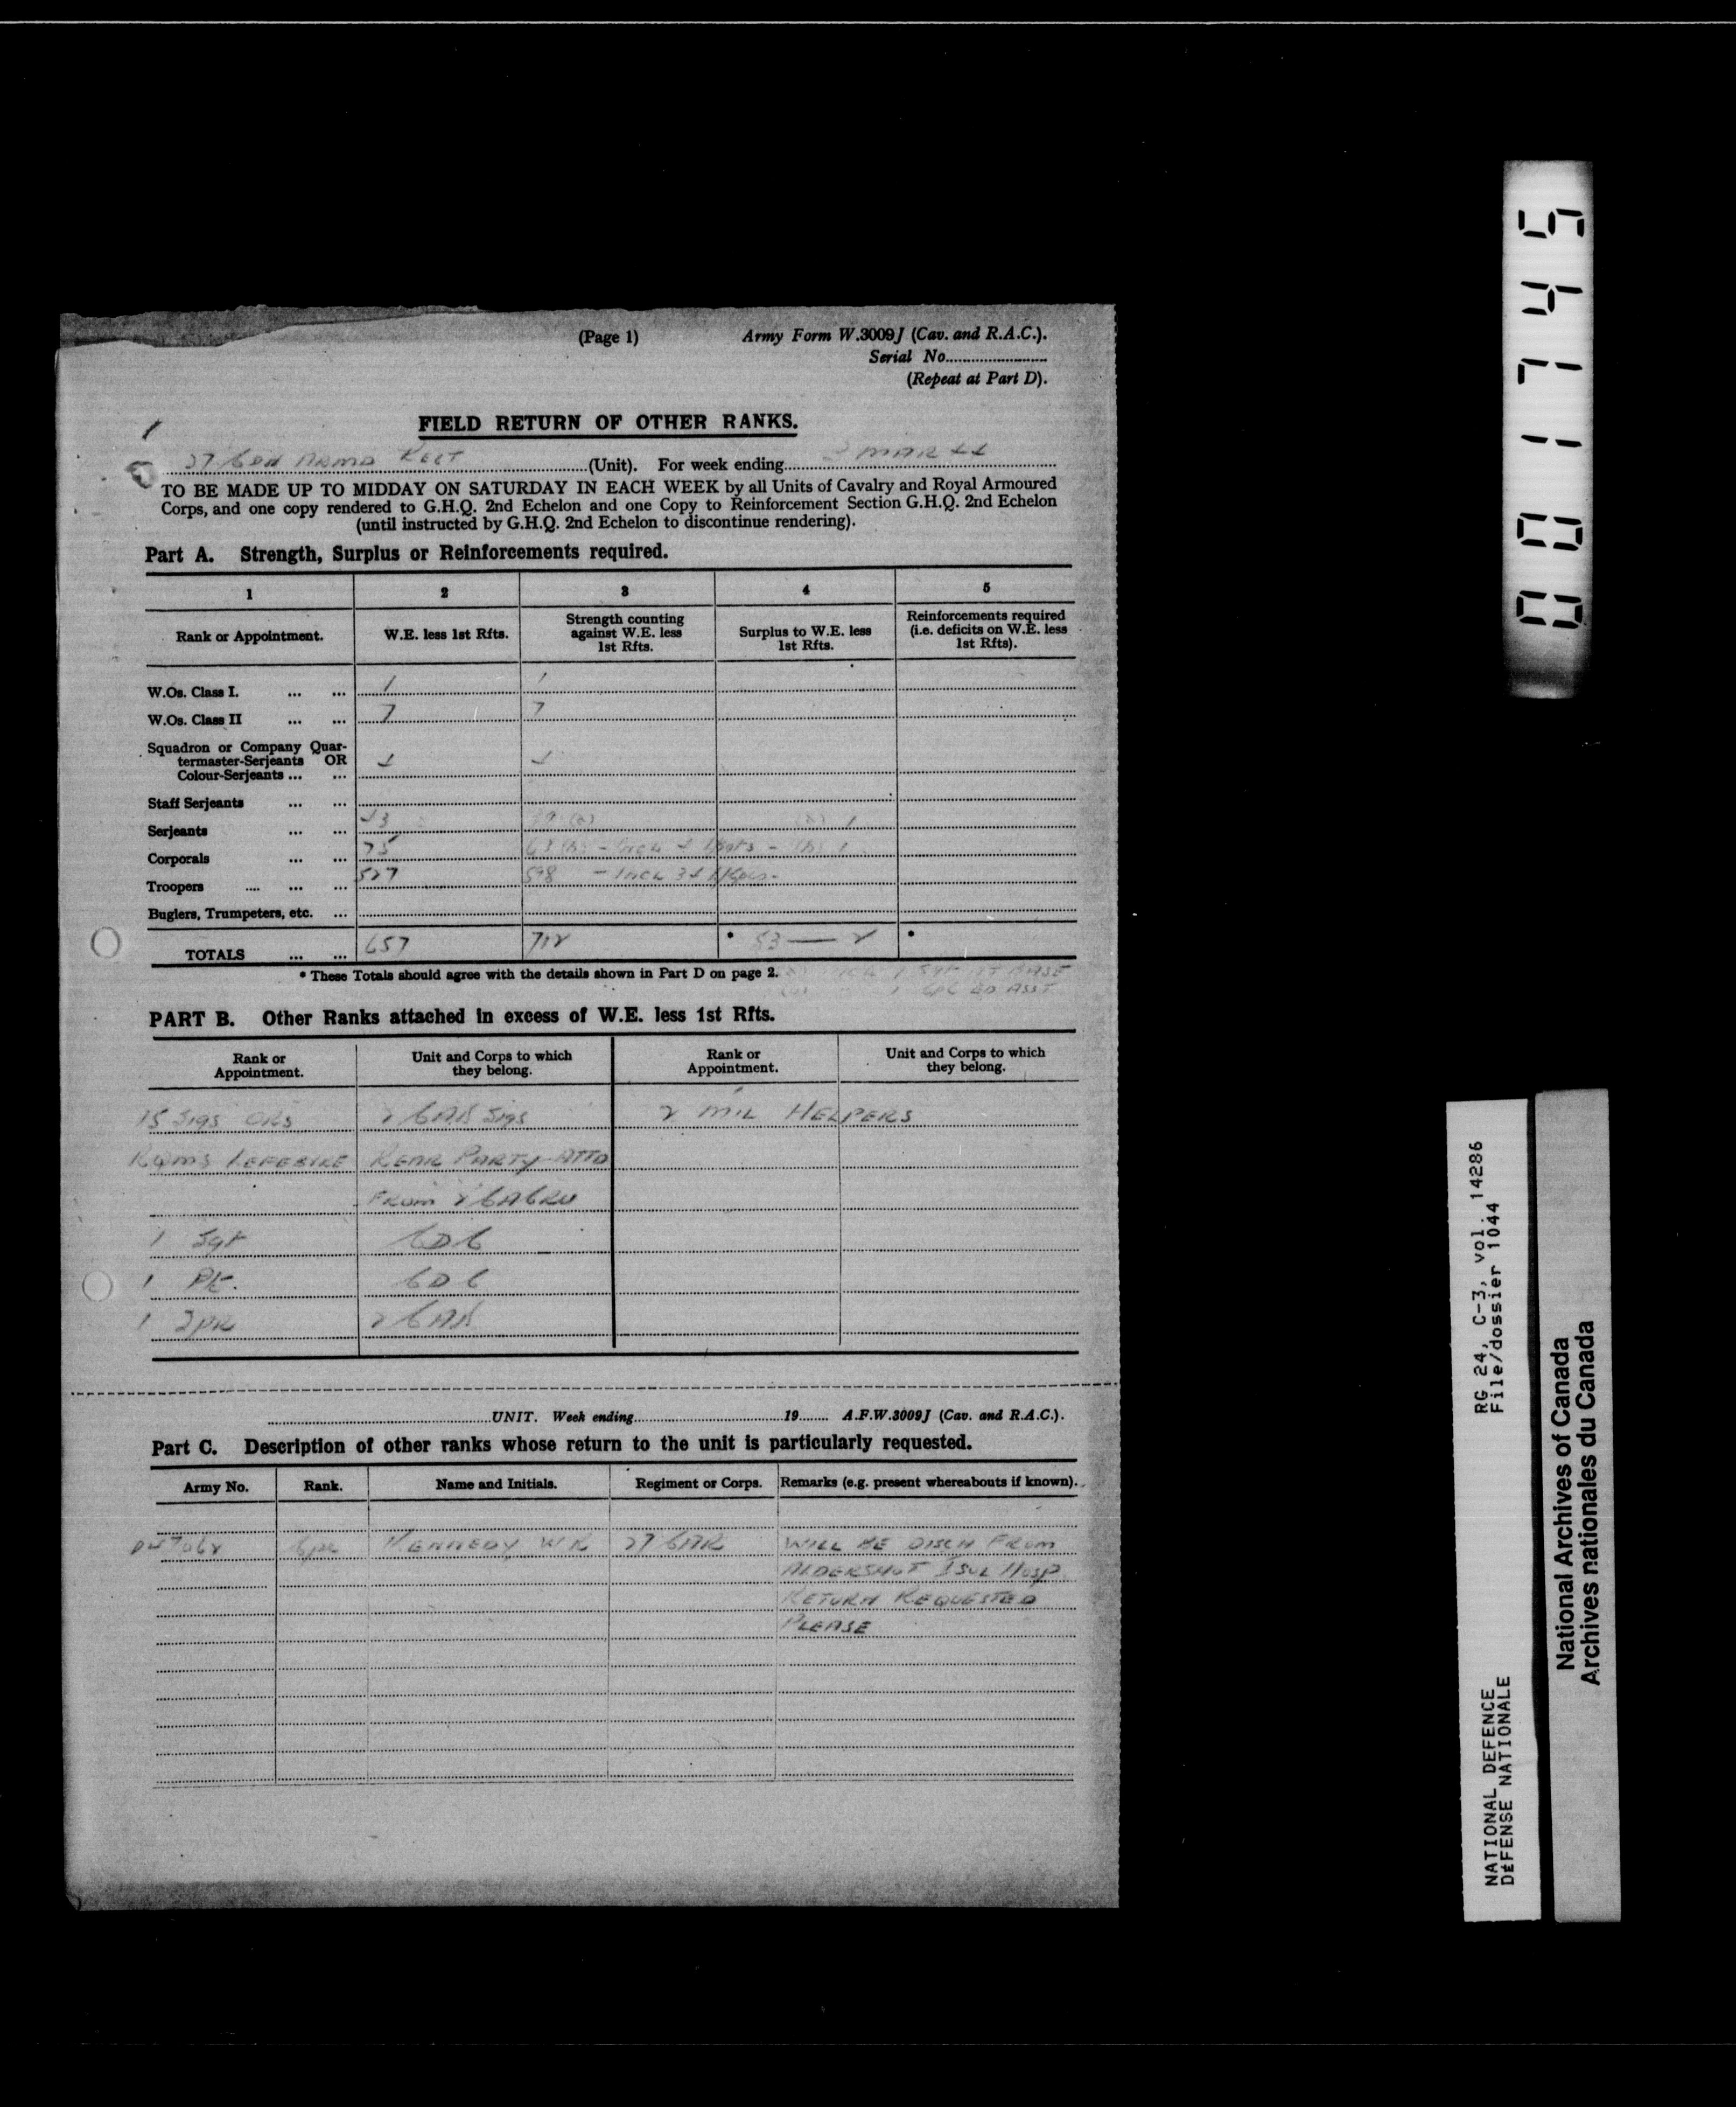 (Page 1) Army Form W.3009J (Cav. and R.A.C.).
Serial No.
(Repeat at Part D).
FIELD RETURN OF OTHER RANKS.
27 CDN ARMD REGT (Unit). For week ending MAR 44
TO BE MADE UP TO MIDDAY ON SATURDAY IN EACH WEEK by all Units of Cavalry and Royal Armoured
Corps, and one copy rendered to G.H.Q. 2nd Echelon and one Copy to Reinforcement Section G.H.Q. 2nd Echelon
(until instructed by G.H.Q. 2nd Echelon to discontinue rendering).
Part A. Strength, Surplus or Reinforcements required.
1 2 3 4 5
Rank or Appointment. W.E. less 1st Rfts. Strength counting against W.E. less 1st Rfts. Surplus to W.E. less 1st Rfts. Reinforcements required (i.e. deficits on W.E. less 1st Rfts).
W.Os. Class I. ... ... 1 1
W.Os. Class II ... ... 7 7
Squadron or Company Quar-
termaster-Serjeants OR
Colour-Serjeants ... ... 4 4
Staff Serjeants ... ...
Serjeants ... ... 43 (a) (a) 1
Corporals ... ... 75 63 (b) - Incl 4 - (b) 1
Troopers .... ... ... 527 598 - Incl 34
Buglers, Trumpeters, etc. ...
TOTALS ... ... 657 712 * 53 — 2 *
* These Totals should agree with the details shown in Part D on page 2.
1 Sgt AT BASE
1 Cpl ED ASST
PART B. Other Ranks attached in excess of W.E. less 1st Rfts.
Rank or Appointment. Unit and Corps to which they belong. Rank or Appointment. Unit and Corps to which they belong.
15 Sigs ORs 2 CAB Sigs 2 MIL HELPERS
RQMS LEFEBVRE REAR PARTY ATTD
FROM 2 CACRU
1 Sgt CDC
1 Pte. CDC
1 2 CAB
UNIT. Week ending 19 A.F.W.3009J (Cav. and R.A.C.).
Part C. Description of other ranks whose return to the unit is particularly requested.
Army No. Rank. Name and Initials. Regiment or Corps. Remarks (e.g. present whereabouts if known).
Cpl KENNEDY, W R 27 CAR WILL BE DISCH FROM
ALDERSHOT ISOL HOSP
RETURN REQUESTED
PLEASE
001745
RG 24, C-3, vol. 14286
File/dossier 1044
NATIONAL DEFENCE
DÉFENSE NATIONALE
National Archives of Canada
Archives nationales du Canada